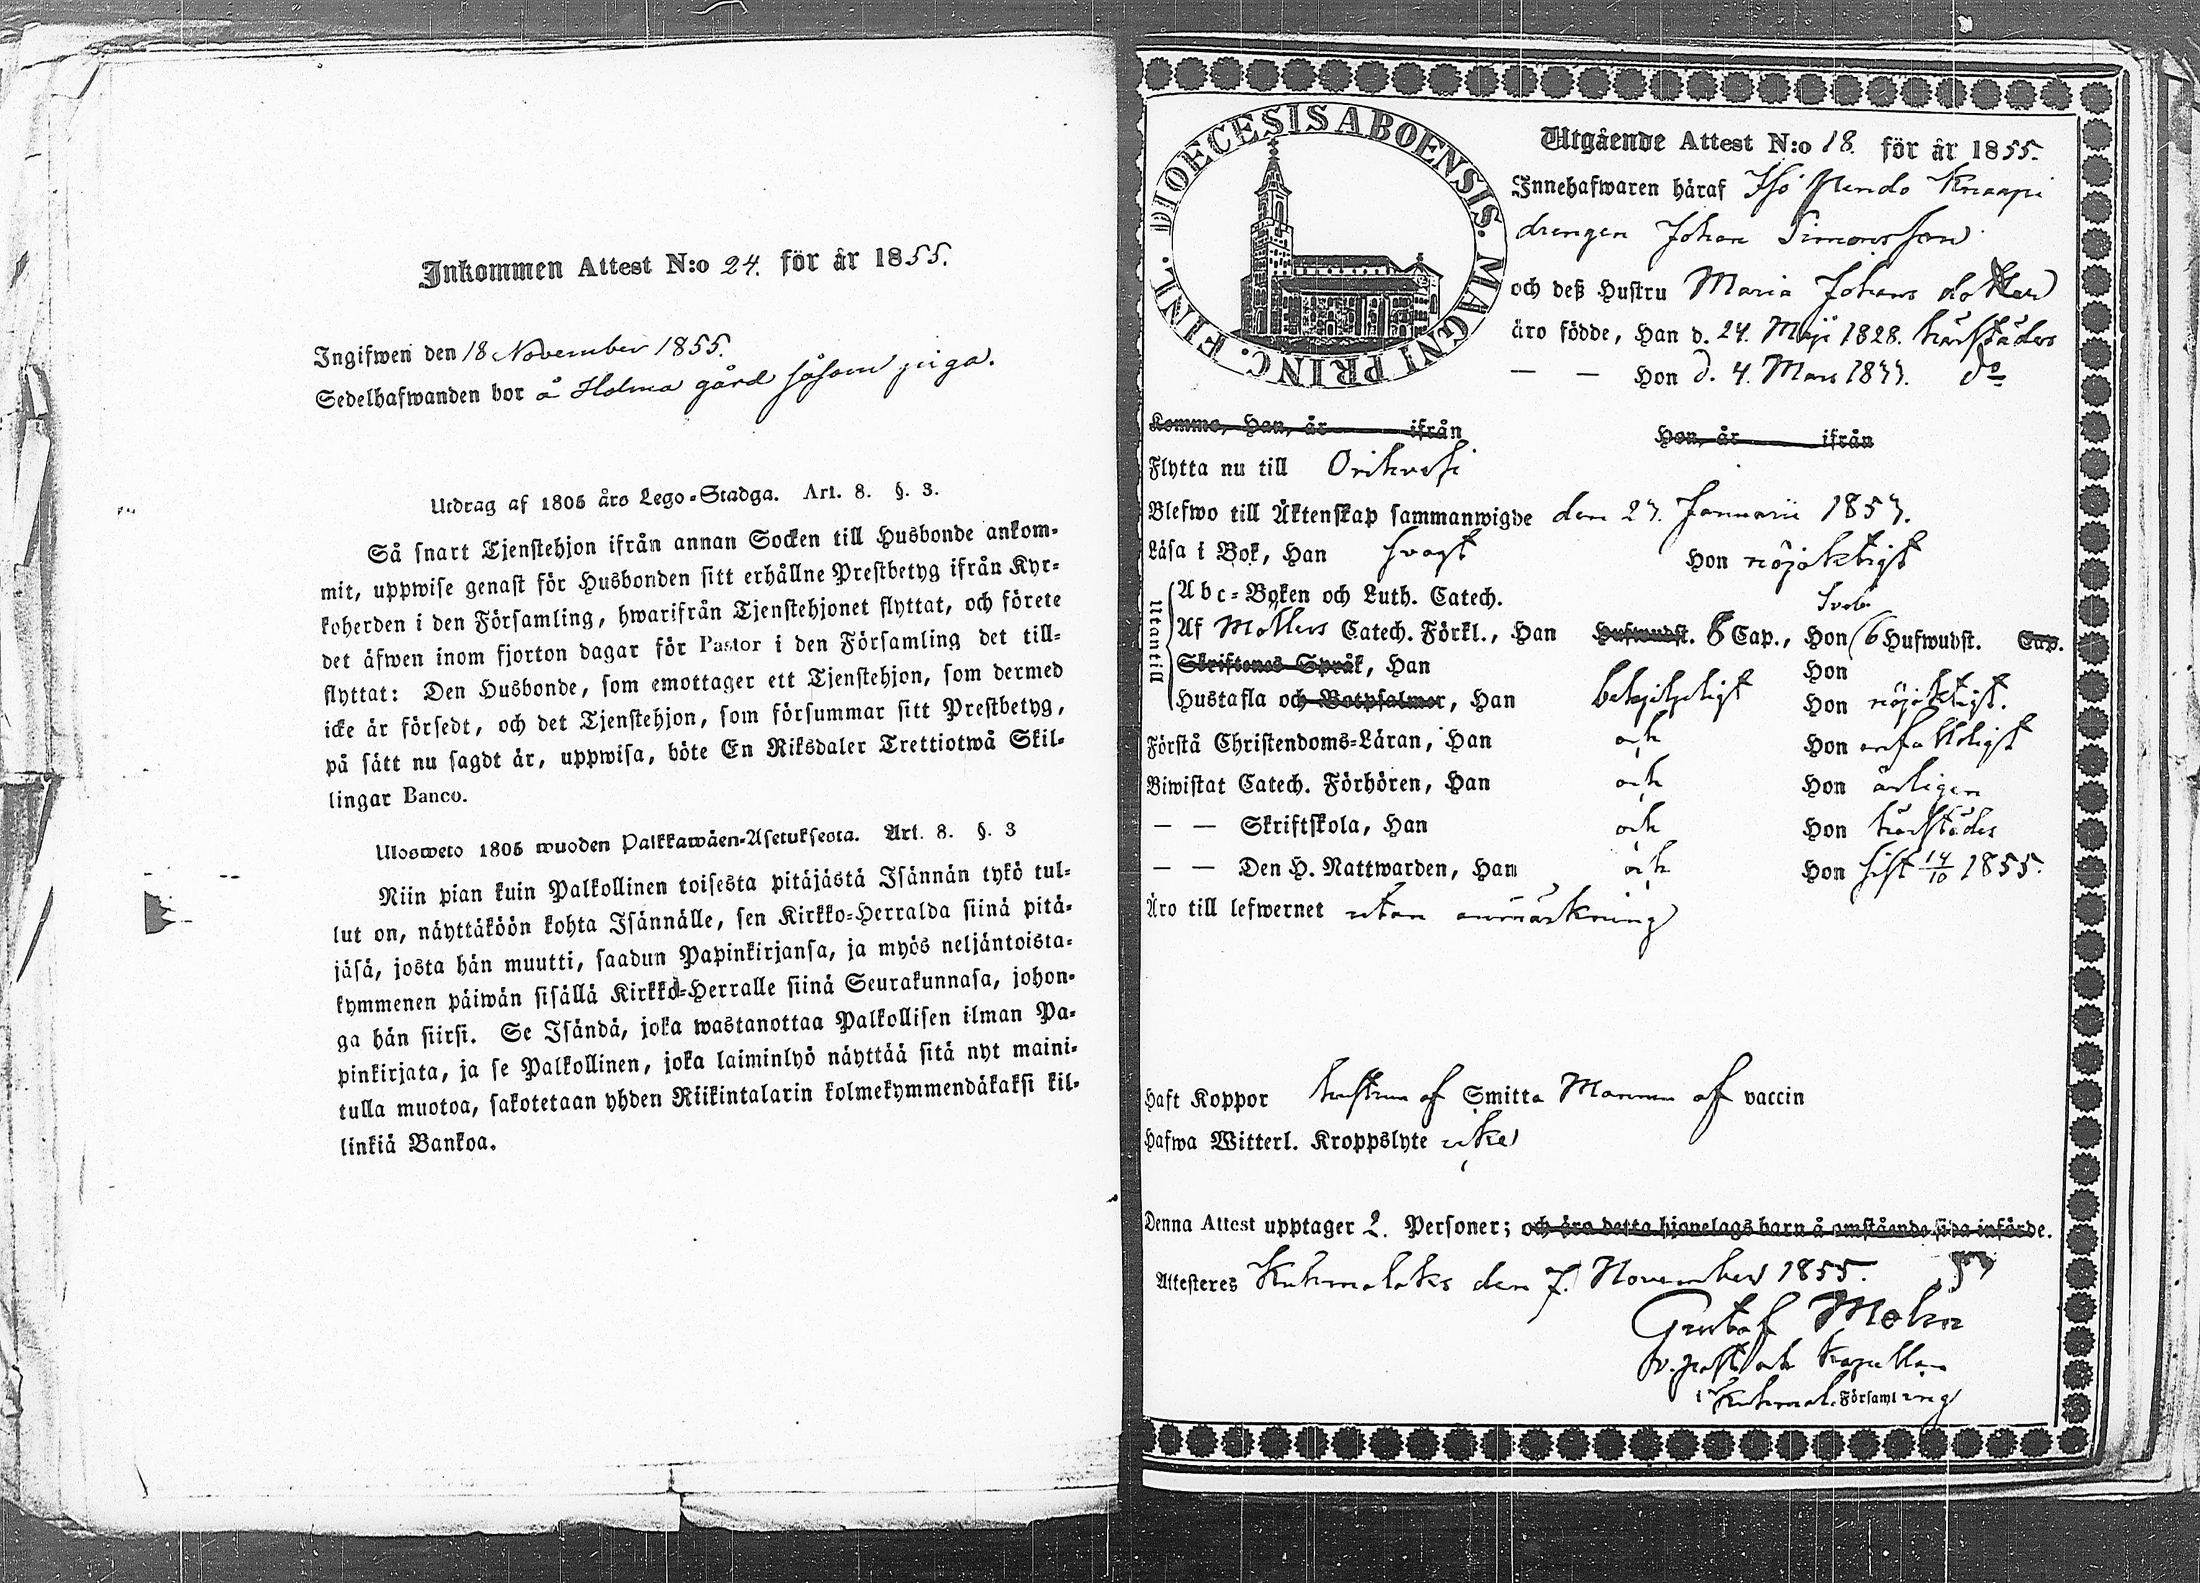 Inkommen Attest N:o 24. för år 1855.
Ingifwen den 18 November 1855.
Sedelhafwanden bor å Holma gård såsom piga.
Utdrag af 1805 års Lego-Stadga. Art. 8. §. 3.
Så snart Tjenstehjon ifrån annan Socken till Husbonde ankom-
mit, uppwise genast för Husbonden sitt erhållne Prestbetyg ifrån Kyr-
koherden i den Församling, hwarifrån Tjenstehjonet flyttat, och förete
det äfwen inom fjorton dagar för Pastor i den Församling det till-
flyttat: Den Husbonde, som emottager ett Tjenstehjon, som dermed
icke är försedt, och det Tjenstehjon, som försummar sitt Prestbetyg,
på sätt nu sagdt är, uppwisa, böte En Riksdaler Trettiotwå Skil-
lingar Banco.
Ulosweto 1805 wuoden Palkkawäen-Asetuksesta. Art. 8. §. 3
Niin pian kuin Palkollinen toisesta pitäjästä Isännän tykö tul-
lut on, näyttäköön kohta Isännälle, sen Kirkko-Herralda siinä pitä-
jäsä, josta hän muutti, saadun Papinkirjansa, ja myös neljäntoista-
kymmenen päiwän sisällä Kirkko-Herralle siinä Seurakunnasa, johon-
ga hän siirsi. Se Isändä, joka wastanottaa Palkollisen ilman Pa-
pinkirjata, ja se Palkollinen, joka laiminlyö näyttää sitä nyt maini-
tulla muotoa, sakotetaan yhden Riikintalarin kolmekymmendäkaksi kil-
linkiä Bankoa.
DIOECESIS ABOENSIS. MAGNI PRINC. FINL.
Utgående Attest N:o 18. för år 1855.
Innehafwaren häraf Iso Pendo Knaapi
drengen Johan Simonsson
och deß Hustru Maria Johans dotter
äro födde, Han d. 24. Maji 1828. härstädes
— — Hon d. 4. Mars 1833. do
Komme, Han, år ifrån Hon, år ifrån
Flytta nu till Orihvesi
Blefwo till Äktenskap sammanwigde den 27. Januarii 1853.
Läsa i Bok, Han svagt Hon nöjaktigt
Utantill
Abc-Boken och Luth. Catech. Sveb.
Af Möllers Catech. Förkl., Han Hufwudst. 6 Cap., Hon 6 Hufwudst. Cap.
Skriftenes Språk, Han Hon
Hustafla och Botpsalmer, Han behjelpligt Hon nöjaktigt.
Förstå Christendoms-Läran, Han och Hon enfaldigt
Biwistat Catech. Förhören, Han och Hon årligen
— — Skriftskola, Han och Hon härstädes
— — Den H. Nattwarden, Han och Hon sist 14/10 1855.
Äro till lefwernet utan anmärkning
Haft Koppor hustrun af Smitta Mannen af vaccin
Hafwa Witterl. Kroppslyte icke
Denna Attest upptager 2. Personer; och äro detta hjonelags barn å omstående sida införde.
Attesteres Kuhmalaks den 7. November 1855.
Gustaf Molin
v. past. och Kapellan
i Kuhmal. Församling